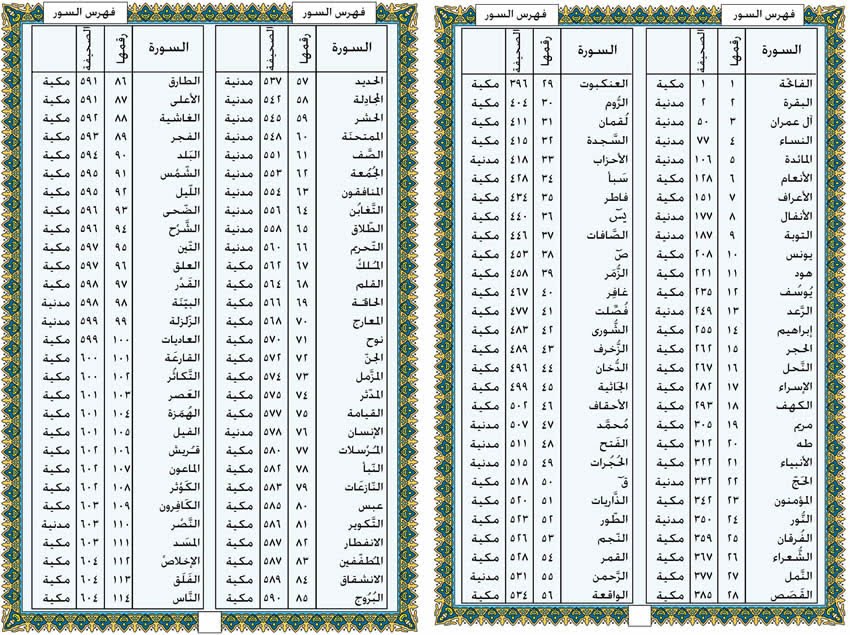 فهرس السور
فهرس السور
السورة رقمها الصحيفة
الفاتحة ١ ١ مكية
البقرة ٢ ٢ مدنية
آل عمران ٣ ٥٠ مدنية
النساء ٤ ٧٧ مدنية
المائدة ٥ ١٠٦ مدنية
الأنعام ٦ ١٢٨ مكية
الأعراف ٧ ١٥١ مكية
الأنفال ٨ ١٧٧ مدنية
التوبة ٩ ١٨٧ مدنية
يونس ١٠ ٢٠٨ مكية
هود ١١ ٢٢١ مكية
يُوسُف ١٢ ٢٣٥ مكية
الرَّعد ١٣ ٢٤٩ مدنية
إبراهيم ١٤ ٢٥٥ مكية
الحجر ١٥ ٢٦٢ مكية
النَّحل ١٦ ٢٦٧ مكية
الإسراء ١٧ ٢٨٢ مكية
الكهف ١٨ ٢٩٣ مكية
مريم ١٩ ٣٠٥ مكية
طه ٢٠ ٣١٢ مكية
الأنبياء ٢١ ٣٢٢ مكية
الحَجّ ٢٢ ٣٣٢ مدنية
المؤمنون ٢٣ ٣٤٢ مكية
النُّور ٢٤ ٣٥٠ مدنية
الفُرقان ٢٥ ٣٥٩ مكية
الشُّعراء ٢٦ ٣٦٧ مكية
النَّمل ٢٧ ٣٧٧ مكية
القَصَص ٢٨ ٣٨٥ مكية
السورة رقمها الصحيفة
العنكبوت ٢٩ ٣٩٦ مكية
الرُّوم ٣٠ ٤٠٤ مكية
لُقمان ٣١ ٤١١ مكية
السَّجدة ٣٢ ٤١٥ مكية
الأحزاب ٣٣ ٤١٨ مدنية
سَبأ ٣٤ ٤٢٨ مكية
فاطر ٣٥ ٤٣٤ مكية
يسٓ ٣٦ ٤٤٠ مكية
الصَّافات ٣٧ ٤٤٦ مكية
صٓ ٣٨ ٤٥٣ مكية
الزُّمَر ٣٩ ٤٥٨ مكية
غافِر ٤٠ ٤٦٧ مكية
فُصِّلت ٤١ ٤٧٧ مكية
الشُّورى ٤٢ ٤٨٣ مكية
الزُّخرف ٤٣ ٤٨٩ مكية
الدُّخان ٤٤ ٤٩٦ مكية
الجَاثية ٤٥ ٤٩٩ مكية
الأحقاف ٤٦ ٥٠٢ مكية
مُحمَّد ٤٧ ٥٠٧ مدنية
الفَتح ٤٨ ٥١١ مدنية
الحُجُرات ٤٩ ٥١٥ مدنية
قٓ ٥٠ ٥١٨ مكية
الذَّاريات ٥١ ٥٢٠ مكية
الطُّور ٥٢ ٥٢٣ مكية
النَّجم ٥٣ ٥٢٦ مكية
القمر ٥٤ ٥٢٨ مكية
الرَّحمن ٥٥ ٥٣١ مدنية
الواقعة ٥٦ ٥٣٤ مكية
فهرس السور
فهرس السور
السورة رقمها الصحيفة
الحديد ٥٧ ٥٣٧ مدنية
المجَادِلة ٥٨ ٥٤٢ مدنية
الحشر ٥٩ ٥٤٥ مدنية
الممتحنَة ٦٠ ٥٤٨ مدنية
الصَّف ٦١ ٥٥١ مدنية
الجُمُعة ٦٢ ٥٥٣ مدنية
المنافقون ٦٣ ٥٥٤ مدنية
التَّغابُن ٦٤ ٥٥٦ مدنية
الطَّلاق ٦٥ ٥٥٨ مدنية
التَّحريم ٦٦ ٥٦٠ مدنية
المُلكُ ٦٧ ٥٦٢ مكية
القلم ٦٨ ٥٦٤ مكية
الحاقـة ٦٩ ٥٦٦ مكية
المعارج ٧٠ ٥٦٨ مكية
نوح ٧١ ٥٧٠ مكية
الجنّ ٧٢ ٥٧٢ مكية
المزَّمل ٧٣ ٥٧٤ مكية
المدّثر ٧٤ ٥٧٥ مكية
القيامة ٧٥ ٥٧٧ مكية
الإنسان ٧٦ ٥٧٨ مدنية
المُرْسلات ٧٧ ٥٨٠ مكية
النّبأ ٧٨ ٥٨٢ مكية
النَّازعَات ٧٩ ٥٨٣ مكية
عبس ٨٠ ٥٨٥ مكية
التَّكوير ٨١ ٥٨٦ مكية
الانفطار ٨٢ ٥٨٧ مكية
المُطفِّفين ٨٣ ٥٨٧ مكية
الانشقاق ٨٤ ٥٨٩ مكية
البُرُوج ٨٥ ٥٩٠ مكية
السورة رقمها الصحيفة
الطارق ٨٦ ٥٩١ مكية
الأعلى ٨٧ ٥٩١ مكية
الغاشية ٨٨ ٥٩٢ مكية
الفجر ٨٩ ٥٩٣ مكية
البَلد ٩٠ ٥٩٤ مكية
الشَّمْس ٩١ ٥٩٥ مكية
اللّيل ٩٢ ٥٩٥ مكية
الضّحى ٩٣ ٥٩٦ مكية
الشَّرْح ٩٤ ٥٩٦ مكية
التّين ٩٥ ٥٩٧ مكية
العلق ٩٦ ٥٩٧ مكية
القَدْر ٩٧ ٥٩٨ مكية
البيّنَة ٩٨ ٥٩٨ مدنية
الزّلزلة ٩٩ ٥٩٩ مدنية
العاديات ١٠٠ ٥٩٩ مكية
القارعَة ١٠١ ٦٠٠ مكية
التَّكاثُر ١٠٢ ٦٠٠ مكية
العَصر ١٠٣ ٦٠١ مكية
الهُمَزة ١٠٤ ٦٠١ مكية
الفيل ١٠٥ ٦٠١ مكية
قـُريش ١٠٦ ٦٠٢ مكية
الماعون ١٠٧ ٦٠٢ مكية
الكَوْثر ١٠٨ ٦٠٢ مكية
الكَافِرون ١٠٩ ٦٠٣ مكية
النَّصْر ١١٠ ٦٠٣ مدنية
المسَد ١١١ ٦٠٣ مكية
الإخلاصْ ١١٢ ٦٠٤ مكية
الفَلَق ١١٣ ٦٠٤ مكية
النَّاس ١١٤ ٦٠٤ مكية